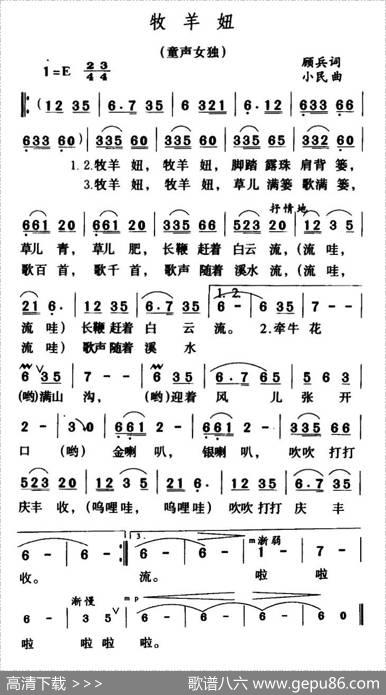 牧 羊 妞
(童声女独)
1=E 2/4 3/4
顾兵词
小民曲
(12 35 | 6·7 35 | 6 321 | 6·12 | 633 66 |
633 60) | 335 60 | 335 60 | 335 66 | 335 60 |
1.2.牧羊 妞, 牧羊 妞, 脚踏 露珠 肩背 篓,
3.牧羊 妞, 牧羊 妞, 草儿 满篓 歌满 篓,
抒情地
661 20 | 661 20 | 335 66 | 523 20 | 12 3 5 |
草儿 青, 草儿 肥, 长鞭 赶着 白云 流,(流 哇,
歌百 首, 歌千 首, 歌声 随着 溪水 流,(流 哇,
1. 2.
21 6· | 12 35 | 6·7 35 | 6 - | 6 35 | 7 - - |
流 哇) 长鞭 赶着 白 云 流。 2.牵牛 花
流 哇) 歌声 随着 溪 水
6 35 | 7 - - | 6 35 | 6·7 65 | 5 6 3 |
(哟)满山 沟, (哟)迎着 风 儿 张 开
2 - | 3 0 | 6 12 | 6 - | 6 12 | 6 - | 335 66 |
口 (哟) 金喇 叭, 银喇 叭, 吹吹 打打
523 20 | 12 35 | 123 21 | 6 - | 335 66 | 6·7 35 |
庆丰 收,(呜哩 哇, 呜哩 哇) 吹吹 打打 庆 丰
3. m渐弱
6 - | 6 - | 6 - | 6 - | 1 - | 7 - |
收。 流。 啦 啦
渐慢 mp
6 - | 3 5 | 6 - | 6 - | 6 - | 6 0
啦 啦 啦 啦。
高清下载 >>>
歌谱八六 www.gepu86.com